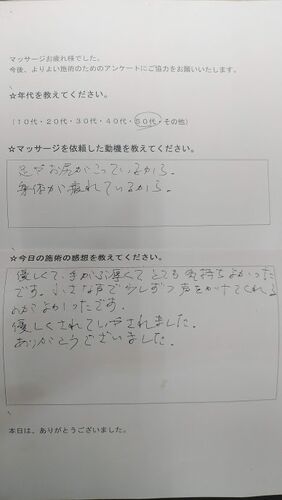 マッサージお疲れ様でした。
今後、よりよい施術のためのアンケートにご協力をお願いいたします。
☆年代を教えてください。
(10代・20代・30代・40代・50代・その他)
☆マッサージを依頼した動機を教えてください。
足がお尻がこっているから。
身体が疲れているから。
☆今日の施術の感想を教えてください。
優しくて、手がぶ厚くてとても気持ちよかった
です。小さな声で少しずつ声をかけてくれる
のがよかったです。
優しくされていやされました。
ありがとうございました。
本日は、ありがとうございました。